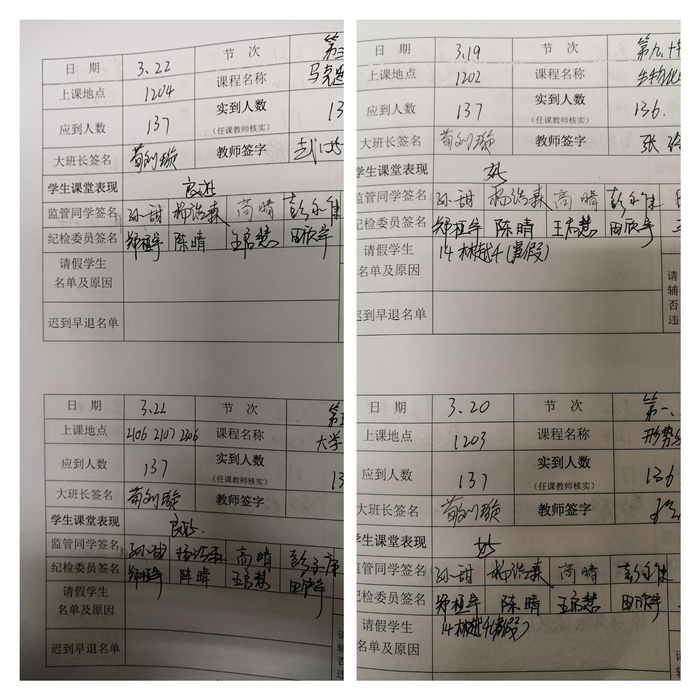 日 期 3.22 节 次 第三
上课地点 1204 课程名称 马克思
应到人数 137 实到人数 13
(任课教师核实)
大班长签名 教师签字
学生课堂表现 良好
监管同学签名 孙甜 杨浩森 高晴
纪检委员签名 郑植学 陈晴 王君慧 田欣宇
请假学生
名单及原因
迟到早退名单
日 期 3.22 节 次 第五
上课地点 2106 2107 2306 课程名称 大学
应到人数 137 实到人数 13
(任课教师核实)
大班长签名 教师签字
学生课堂表现 良好
监管同学签名 孙甜 杨浩森 高晴
纪检委员签名 郑植学 陈晴 王君慧 田欣宇
请假学生
名单及原因
迟到早退名单
日 期 3.19 节 次 第九、十
上课地点 1202 课程名称 生物化
应到人数 137 实到人数 136.
(任课教师核实)
大班长签名 教师签字 张
学生课堂表现 好
监管同学签名 孙甜 杨浩森 高晴
纪检委员签名 郑植学 陈晴 王君慧 田欣宇
请假学生 14 林越千(事假)
名单及原因
迟到早退名单
日 期 3.20 节 次 第一、
上课地点 1203 课程名称 形势
应到人数 137 实到人数 136
(任课教师核实)
大班长签名 教师签字
学生课堂表现 好
监管同学签名 孙甜 杨浩森 高晴
纪检委员签名 郑植学 陈晴 王君慧 田欣宇
请假学生 14 林越千(事假)
名单及原因